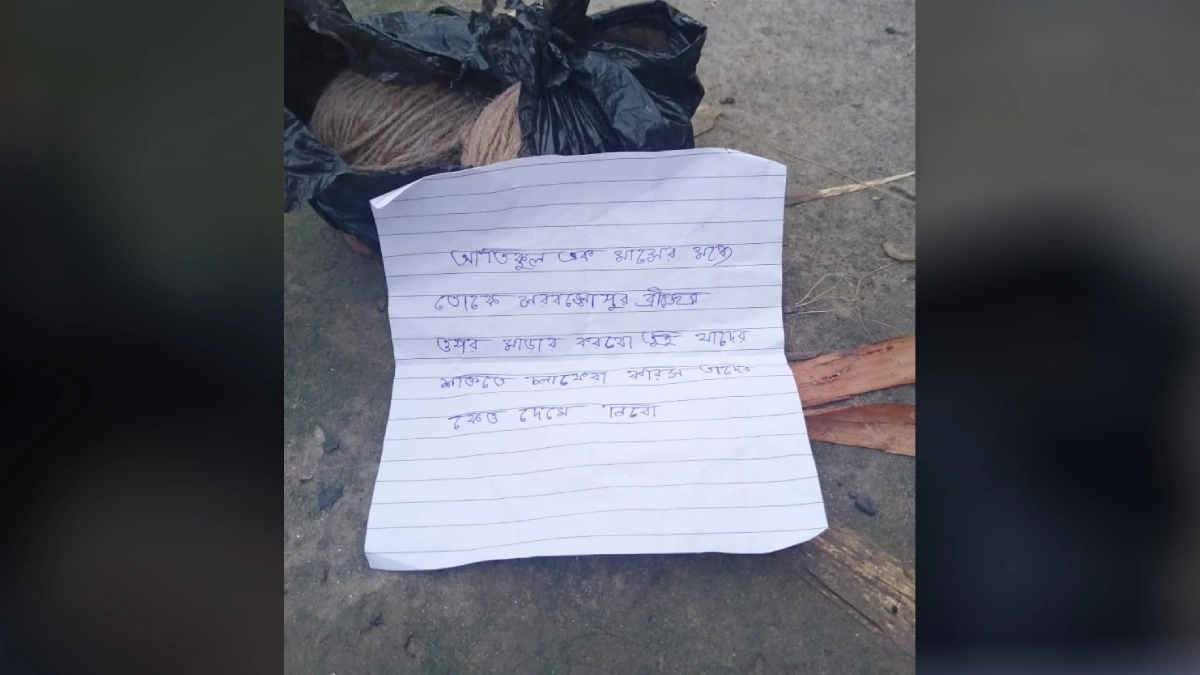 আতিকুল এক মাসের মধ্যে
তোকে সরবজ্ঞোপুর ব্রীজের
ওপর মাডার করবো তুই যাদের
শক্তিতে চলাফেরা করিস তাদের
কেও দেমে নিবো